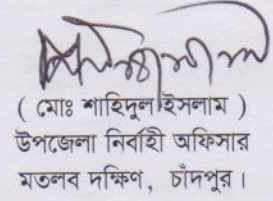 ( মোঃ শাহিদুল ইসলাম )
উপজেলা নির্বাহী অফিসার
মতলব দক্ষিণ, চাঁদপুর।